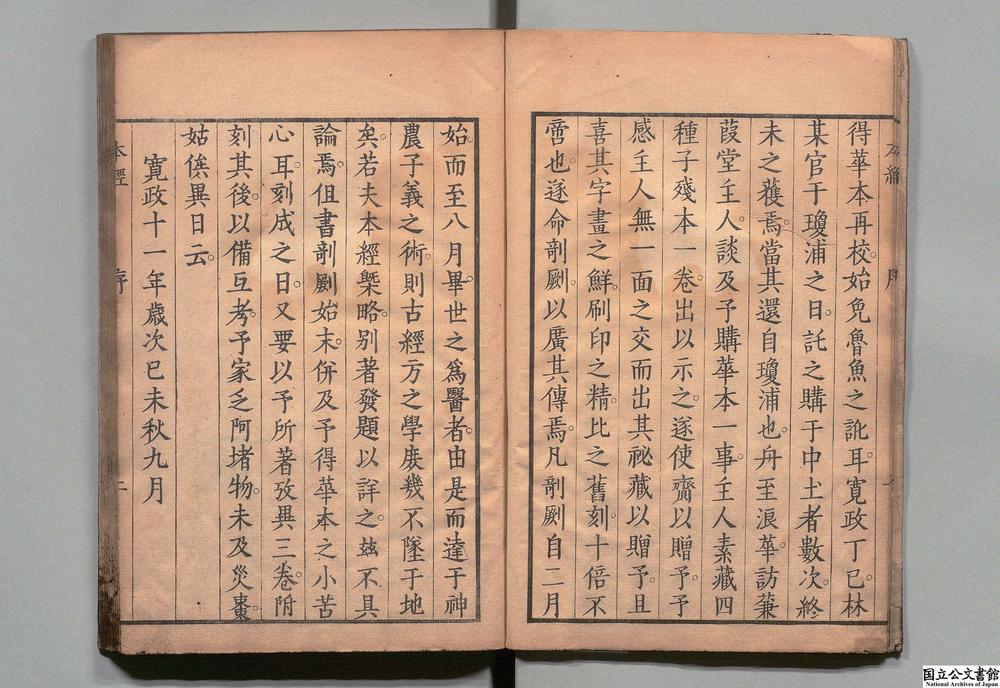 得華本再校。始免魯魚之訛耳。寛政丁巳。林
某官于瓊浦之日。託之購于中土者數次。終
未之獲焉。當其還自瓊浦也。舟至浪華。訪蒹
葭堂主人。談及予購華本一事。主人素藏四
種子殘本一卷。出以示之。遂使齎以贈予。予
感主人無一面之交而出其祕藏以贈予。且
喜其字畫之鮮。刷印之精。比之舊刻。十倍不
啻也。遂命剞劂。以廣其傳焉。凡剞劂自二月
始。而至八月畢。世之爲醫者。由是而達于神
農子義之術。則古經方之學。庶幾不墜于地
矣。若夫本經槩略。別著發題以詳之。玆不具
論焉。但書剞劂始末。併及予得華本之小苦
心耳。刻成之日。又要以予所著攷異三卷。附
刻其後。以備互考。予家乏阿堵物。未及災棗。
姑俟異日云。
寛政十一年歲次己未秋九月
本經
序
二
国立公文書館
National Archives of Japan